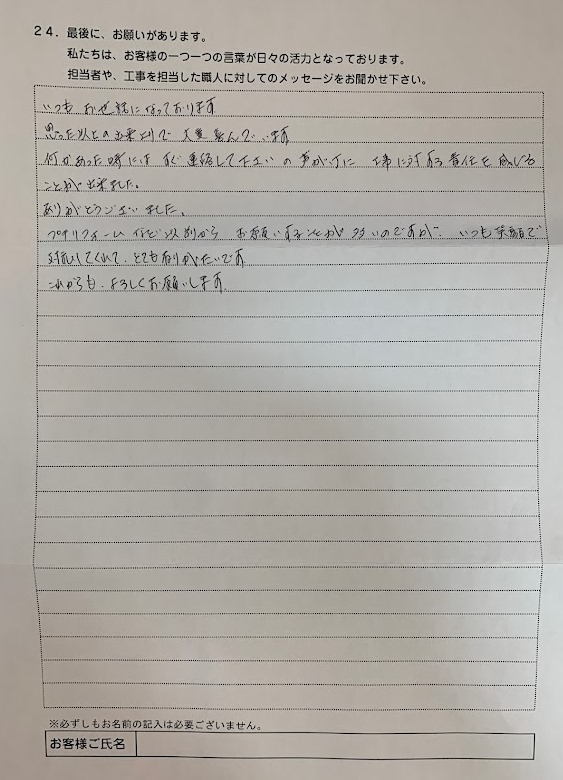 24. 最後に、お願いがあります。
私たちは、お客様の一つ一つの言葉が日々の活力となっております。
担当者や、工事を担当した職人に対してのメッセージをお聞かせ下さい。
いつも お世話になっております
思った以上の出来上りで 大変喜んでいます
何かあった時には すぐ連絡して下さい の声かけに 仕事に対する責任を感じる
ことが出来ました。
ありがとうございました。
プチリフォームなど以前から お願いすることが多いのですが、いつも笑顔で
対応してくれて、とても有りがたいです
これからも、よろしくお願いします。
※必ずしもお名前の記入は必要ございません。
お客様ご氏名